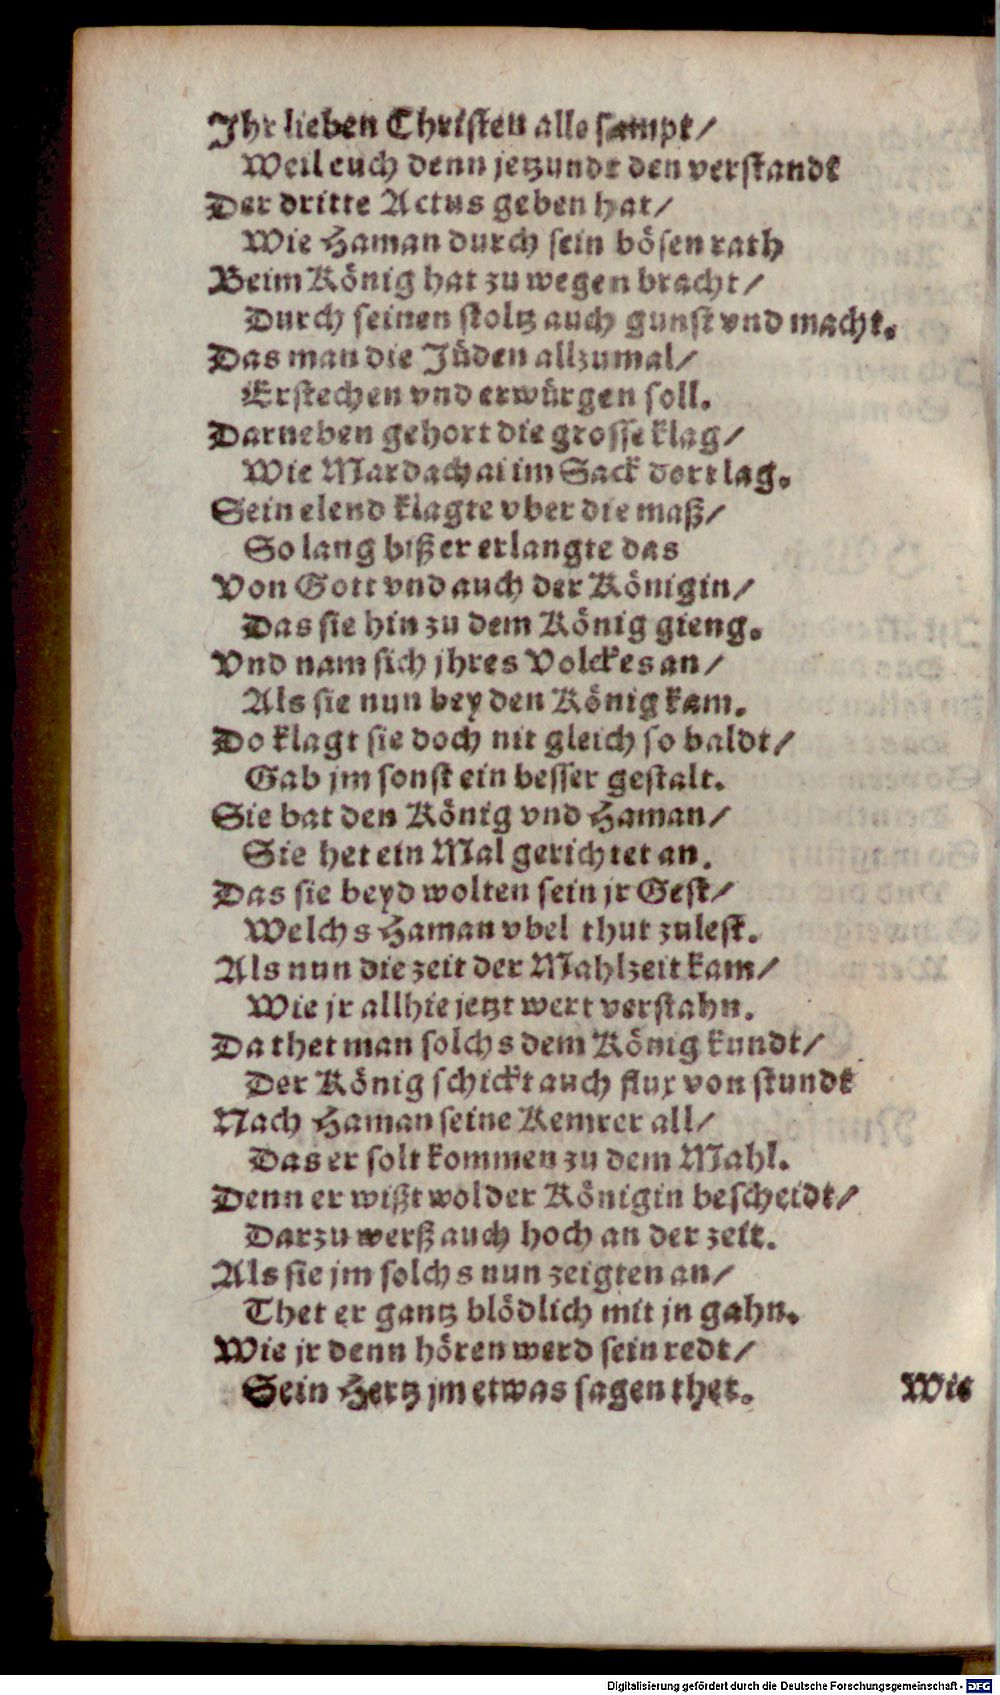 Ihr lieben Christen alle sampt/
Weil euch denn jetzundt den verstandt
Der dritte Actus geben hat/
Wie Haman durch sein bösen rath
Beim König hat zu wegen bracht/
Durch seinen stoltz auch gunst vnd macht.
Das man die Jüden allzumal/
Erstechen vnd erwürgen soll.
Darneben gehort die grosse klag/
Wie Mardachai im Sack dort lag.
Sein elend klagte vber die maß/
So lang biß er erlangte das
Von Gott vnd auch der Königin/
Das sie hin zu dem König gieng.
Vnd nam sich jhres Volckes an/
Als sie nun bey den König kam.
Do klagt sie doch nit gleich so baldt/
Gab jm sonst ein besser gestalt.
Sie bat den König vnd Haman/
Sie het ein Mal gerichtet an.
Das sie beyd wolten sein jr Gest/
Welchs Haman vbel thut zulest.
Als nun die zeit der Mahlzeit kam/
Wie jr allhie jetzt wert verstahn.
Da thet man solchs dem König kundt/
Der König schickt auch flux von stundt
Nach Haman seine Kemrer all/
Das er solt kommen zu dem Mahl.
Denn er wißt wol der Königin bescheidt/
Darzu werß auch hoch an der zeit.
Als sie jm solchs nun zeigten an/
Thet er gantz blödlich mit jn gahn.
Wie jr denn hören werd sein redt/
Sein Hertz jm etwas sagen thet.
Wie
Digitalisierung gefördert durch die Deutsche Forschungsgemeinschaft - DFG